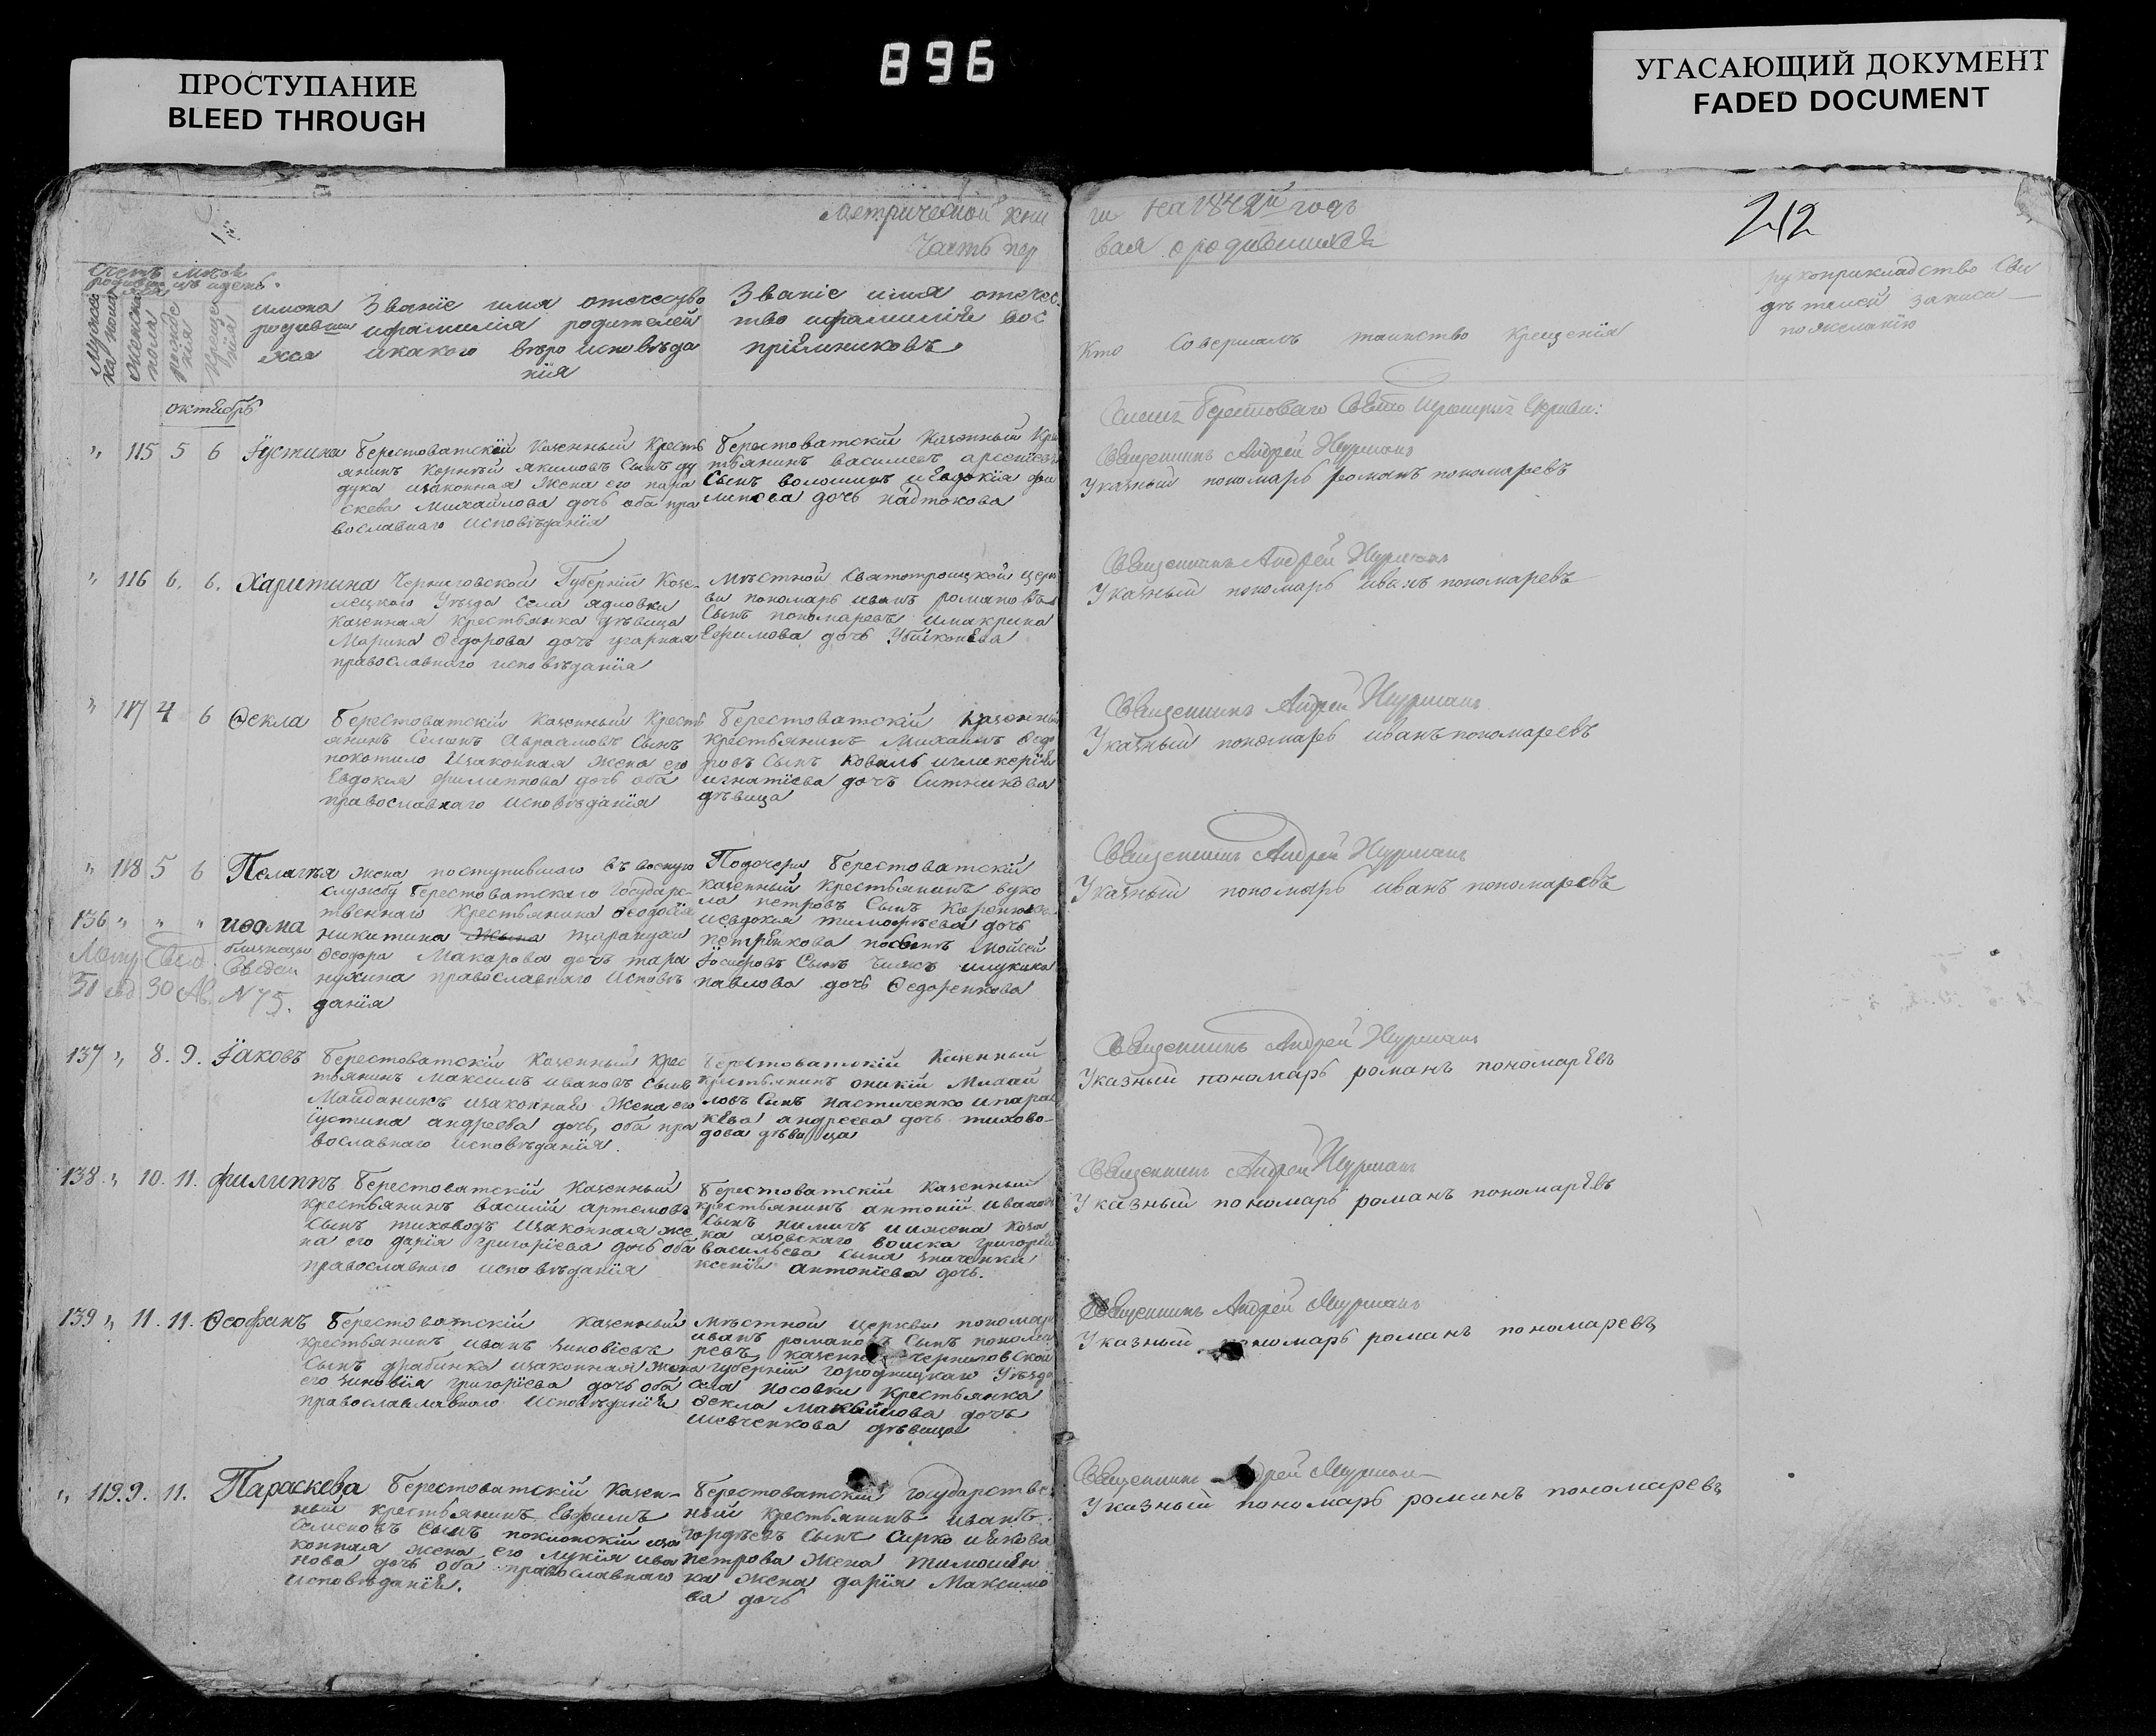 896
ПРОСТУПАНИЕ
BLEED THROUGH
УГАСАЮЩИЙ ДОКУМЕНТ
FADED DOCUMENT
Метрической кни
Часть пер
ги на 1842й годъ
вая о родившихся
212
Счетъ
родив
Мужеска пола
Женска пола
Рожде
нія
Креще
нія
имена
родивши
хся
Званіе имя отечество
ифамилія родителей
икакого вѣро исповѣда
нія
Званіе имя отечес
тво ифамилія вос
пріемниковъ
Кто Совершалъ таинство Крещенія
рукоприкладство Сви
дѣтелей записи
пожеланію
октябрь
„ 115 5 6 Іустина
Берестоватскій Казенный Кресть
янинъ Корнѣй якимовъ Сынъ ду
дука изаконная Жена его пара
скева Михайлова дочь оба пра
вославнаго исповѣданія
Берестоватскій Казенный Кре
тьянинъ василіевъ арсеніевъ
Сынъ волошинъ иевдокія фи
липова дочь надтокова
Священникъ Андрей
Указный пономарь романъ пономаревъ
„ 116 6. 6. Харитина
Черниговской Губерніи Козе-
лецкаго Уѣзда Села ядловки
Казенная крестьянка дѣвица
Марина Ѳедорова дочь угарная
православнаго исповѣданія
Мѣстной Святотроицкой церк
ви пономарь иванъ романовъ
Сынъ пономаревъ имакрина
Ефимова дочь
Священникъ Андрей
Указный пономарь иванъ пономаревъ
„ 117 4 6 Ѳекла
Берестоватскій Казенный Кресть
янинъ Семенъ Авраамовъ Сынъ
покотило изаконная Жена его
Евдокия филиппова дочь оба
православнаго исповѣданія
Берестоватскій Казенный
крестьянинъ Михаилъ Ѳедо
ровъ Сынъ коваль игликерія
игнатіева дочь Ситникова
дѣвица
Священникъ Андрей
Указный пономарь иванъ пономаревъ
„ 118 5 6 Пелагѣя
136 „ „ „ иѳома
близнецы
Сведен
30 N 75.
жена поступившаго въ воєную
службу Берестоватскаго Государс-
твеннаго Крестьянина Ѳеодосія
никитина таранухи
Ѳеодора Макарова дочь тара
нухина православнаго исповѣ
данія
Подочери Берестоватскій
казенный крестьянинъ вуко
ла петровъ Сынъ
иевдокия тимофѣева дочь
петренкова посынѣ Мойсей
Іосифовъ Сынъ Чижъ илукика
павлова дочь Ѳедоренкова
Священникъ Андрей
Указный пономарь иванъ пономаревъ
137 „ 8. 9. Іаковъ
Берестоватскій Казенный Крес
тьянинъ Максимъ ивановъ Сынъ
Майданикъ изаконная Жена его
Іустина андреева дочь, оба пра
вославнаго исповѣданія.
Берестоватскій Казенный
крестьянинъ оникій Михай
ловъ Сынъ Настиченко ипарас
кева андреева дочь тихово-
дова дѣвица
Священникъ Андрей
Указный пономарь романъ пономаревъ
138 „ 10. 11. филиппъ
Берестоватскій Казенный
крестьянинъ василій артемовъ
Сынъ тиховодъ изаконная же
на его дарія григоріева дочь оба
православнаго исповѣданія
Берестоватскій Казенный
крестьянинъ антоній ивановъ
Сынъ нимичъ ижена Коза
ка азовскаго войска григорія
васильева сына
ксенія антоніева дочь.
Священникъ Андрей
Указный пономарь романъ пономаревъ
139 „ 11. 11. Ѳеофанъ
Берестоватскій Казенный
крестьянинъ иванъ зиновіевъ
Сынъ драбинка изаконная жена
его зиновія григоріева дочь оба
православлавного исповѣданія
Мѣстной церкви пономарь
иванъ романовъ Сынъ понома
ревъ, казенная черниговской
губерніи городницкаго Уѣзда
села носовки крестьянка
Ѳекла Максимова дочь
шевченкова дѣвица
Священникъ Андрей
Указный пономарь романъ пономаревъ
„ 119. 9. 11. Параскева
Берестоватскій Казен-
ный крестьянинъ Ефимъ
Семеновъ Сынъ поклонскій иза
конная жена его лукія ива
нова дочь оба православнаго
исповѣданія.
Берестоватскій государстве
ный крестьянинъ иванъ
гордѣевъ Сынъ Сирко
петрова жена тимошен
ка жена дарія Максимо
ва дочь
Священникъ Андрей
Указный пономарь романъ пономаревъ